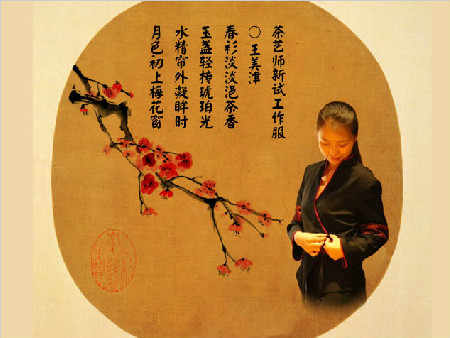 茶艺师新试工作服
○王美
春衫淡淡浥茶香
玉盏轻持琥珀光
水精帘外凝眸时
月色初上梅花窗